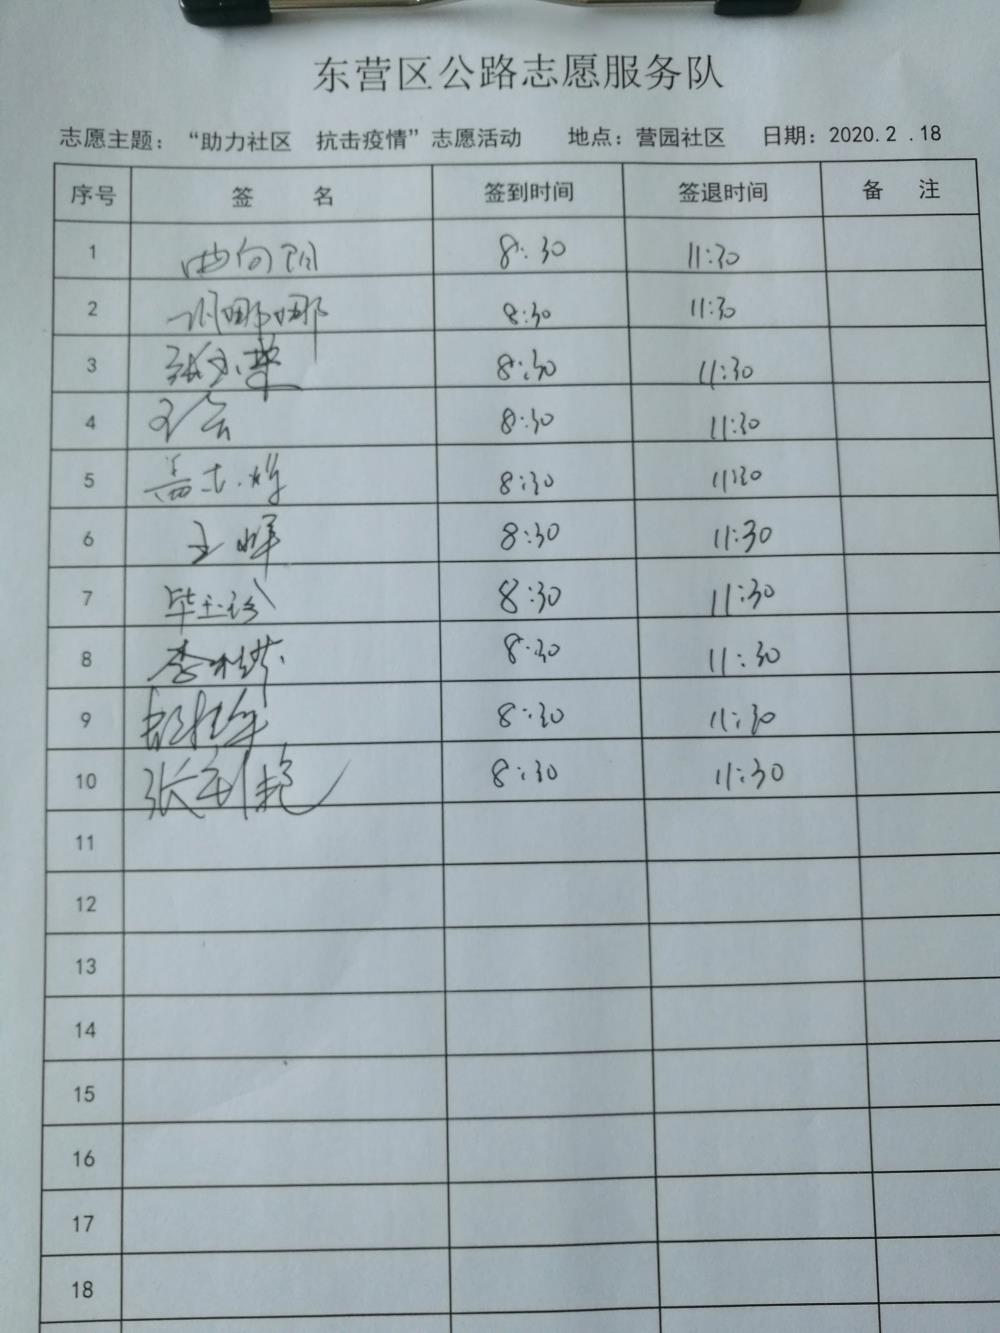 东营区公路志愿服务队
志愿主题：“助力社区 抗击疫情”志愿活动 地点：营园社区 日期：2020.2.18
序号 签 名 签到时间 签退时间 备 注
1 曲向阳 8:30 11:30
2 娜娜 8:30 11:30
3 8:30 11:30
4 王会 8:30 11:30
5 盖志辉 8:30 11:30
6 王辉 8:30 11:30
7 毕玉珍 8:30 11:30
8 李 8:30 11:30
9 8:30 11:30
10 张 艳 8:30 11:30
11
12
13
14
15
16
17
18